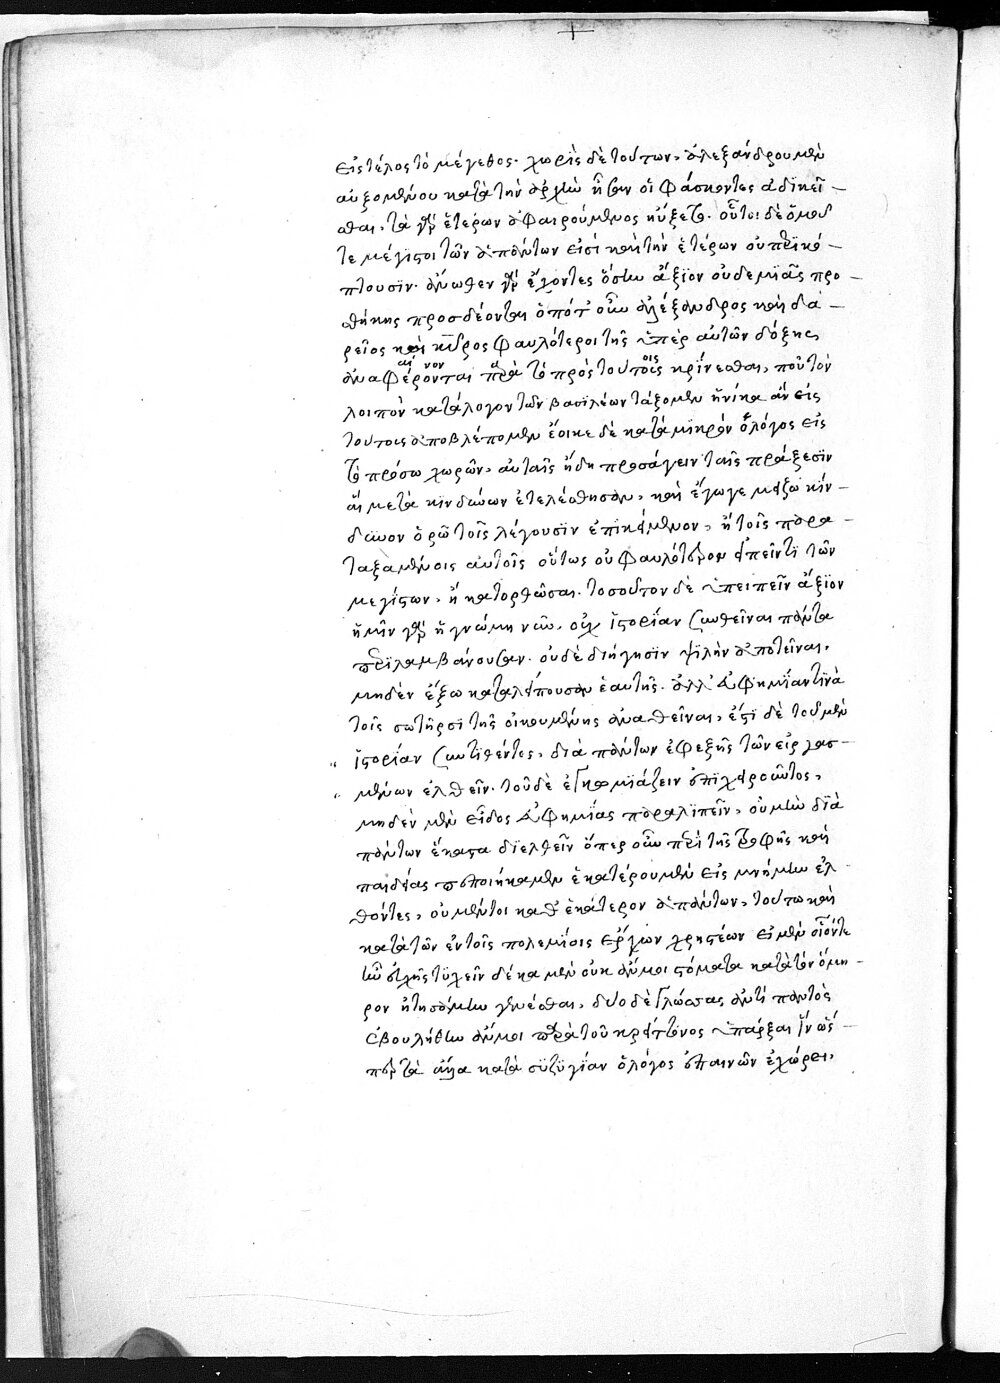 εἰς τέλος τὸ μέγεθος· χωρὶς δὲ τούτων, ἀλεξάνδρου μὲν
αὐξομένου κατὰ τὴν ἀρχὴν ἦσαν οἱ φάσκοντες ἀδικεῖ-
σθαι, τὰ γὰρ ἑτέρων ἀφαιρούμενος ηὔξετο· οὗτοι δὲ ὁμοῦ
τε μέγιστοι τῶν ἁπάντων εἰσὶ καὶ τὴν ἑτέρων οὐ περικό-
πτουσιν· ἄνωθεν γὰρ ἔχοντες ὅσην ἄξιον οὐδεμιᾶς προ-
θήκης προσδέονται ὁπότ' οὖν ἀλέξανδρος καὶ δα-
ρεῖος καὶ κῦρος φαυλότεροι τῆς ὑπὲρ αὐτῶν δόξης
ἀναφέρονται παρὰ τὸ πρὸς τούτοις κρίνεσθαι, ποῦ τὸν
λοιπὸν κατάλογον τῶν βασιλέων τάξομεν ἡνίκα ἂν εἰς
τούτους ἀποβλέπομεν ἔοικε δὲ κατὰ μικρὸν ὁ λόγος εἰς
τὸ πρόσω χωρῶν, αὐταῖς ἤδη προσάγειν ταῖς πράξεσιν
αἳ μετὰ κινδύνων ἐτελέσθησαν, καὶ ἔγωγε μείζω κίν-
δυνον ὁρῶ τοῖς λέγουσιν ἐπικείμενον, ἢ τοῖς παρα-
ταξαμένοις αὐτοῖς οὕτως οὐ φαυλότερον εἰπεῖν τι τῶν
μεγίστων, ἢ κατορθῶσαι. τοσοῦτον δὲ ὑπειπεῖν ἄξιον
ἡμῖν γὰρ ἡ γνώμη νῦν, οὐχ ἱστορίαν συνθεῖναι πάντα
περιλαμβάνουσαν· οὐδὲ διήγησιν ψιλὴν ἀποτεῖναι,
μηδὲν ἔξω καταλείπουσαν ἑαυτῆς· ἀλλ' εὐφημίαν τινὰ
τοῖς σωτῆρσι τῆς οἰκουμένης ἀναθεῖναι, ἔστι δὲ τοῦ μὲν
ἱστορίαν συντιθέντος, διὰ πάντων ἐφεξῆς τῶν εἰργασ-
μένων ἐλθεῖν· τοῦ δὲ ἐγκωμιάζειν ἐπιχειροῦντος,
μηδὲν μὲν εἶδος εὐφημίας παραλιπεῖν, οὐ μὴν διὰ
πάντων ἕκαστα διελθεῖν ὅπερ οὖν περὶ τῆς τροφῆς καὶ
παιδείας πεποιήκαμεν ἑκατέρου μὲν εἰς μνήμην ἐλ-
θόντες, οὐ μέντοι καθ' ἑκάτερον ἁπάντων, τούτω καὶ
κατὰ τῶν ἐν τοῖς πολεμίοις ἔργων χρηστέων εἰ μὲν οἷόν τε
ἦν εὐχῆς τυχεῖν δέκα μὲν οὐκ ἄν μοι στόματα κατὰ τὸν ὅμη-
ρον ᾐτησάμην γενέσθαι, δύο δὲ γλώσσας ἀντὶ παντὸς
ἐβουλήθην ἄν μοι παρὰ τοῦ κρείττονος ὑπάρξαι ἵν' ὥσ-
περ τὰ ἄλλα κατὰ συζυγίαν ὁ λόγος ἐπαινῶν ἐχώρει,